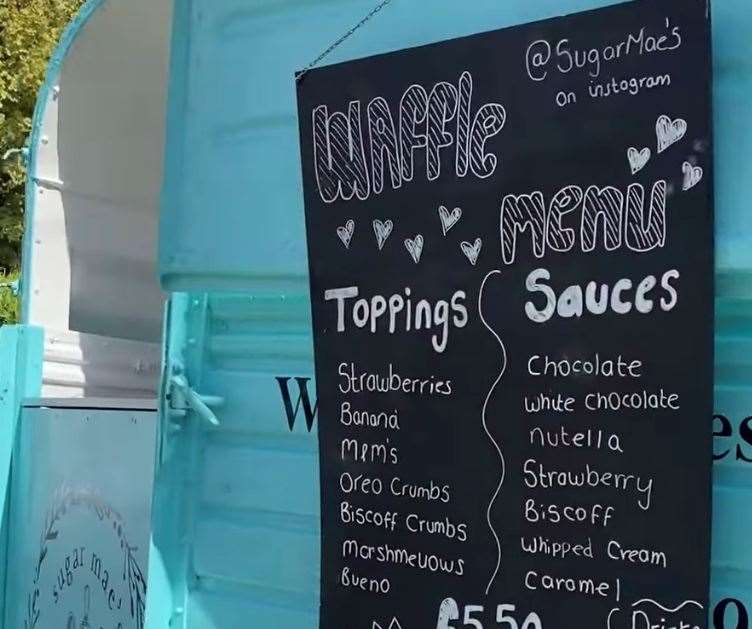 @SugarMae's
on instagram
WAFFle
menu
Toppings
Strawberries
Banana
M&M's
Oreo Crumbs
Biscoff Crumbs
Marshmellows
Bueno
Sauces
Chocolate
White Chocolate
nutella
Strawberry
Biscoff
Whipped Cream
Caramel
£5.50
sugar mae's